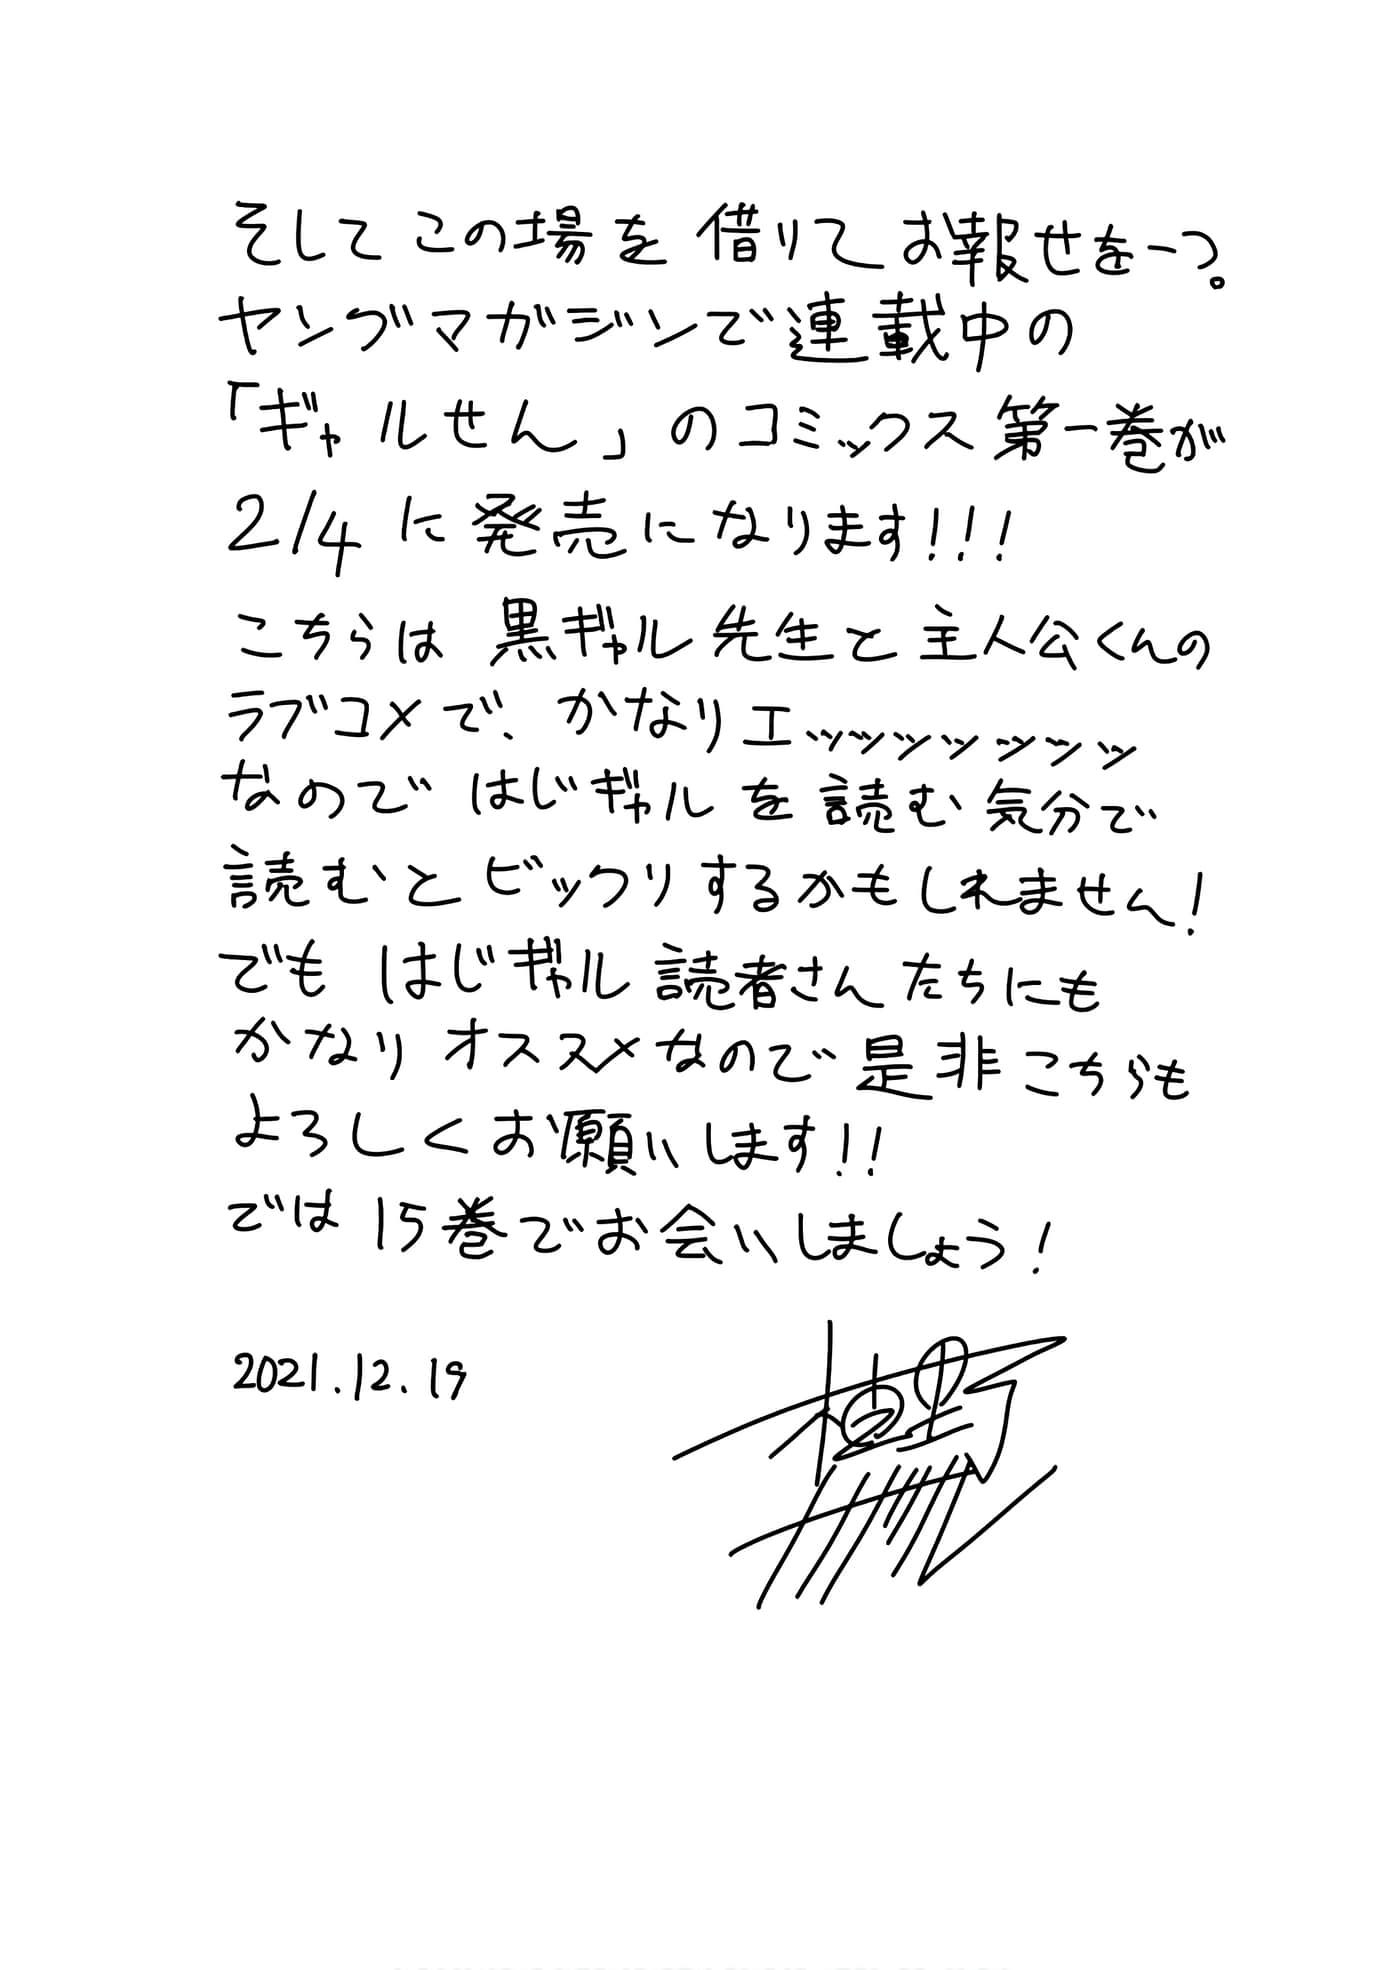 そしてこの場を借りてお報せを一つ。
ヤングマガジンで連載中の
「ギャルせん」のコミックス第一巻が
2/4に発売になります!!!
こちらは黒ギャル先生と主人公くんの
ラブコメで、かなりエッッッッッッッ
なのではじギャルを読む気分で
読むとビックリするかもしれません!
でもはじギャル読者さんたちにも
かなりオススメなので是非こちらも
よろしくお願いします!!
では15巻でお会いしましょう!
2021.12.19